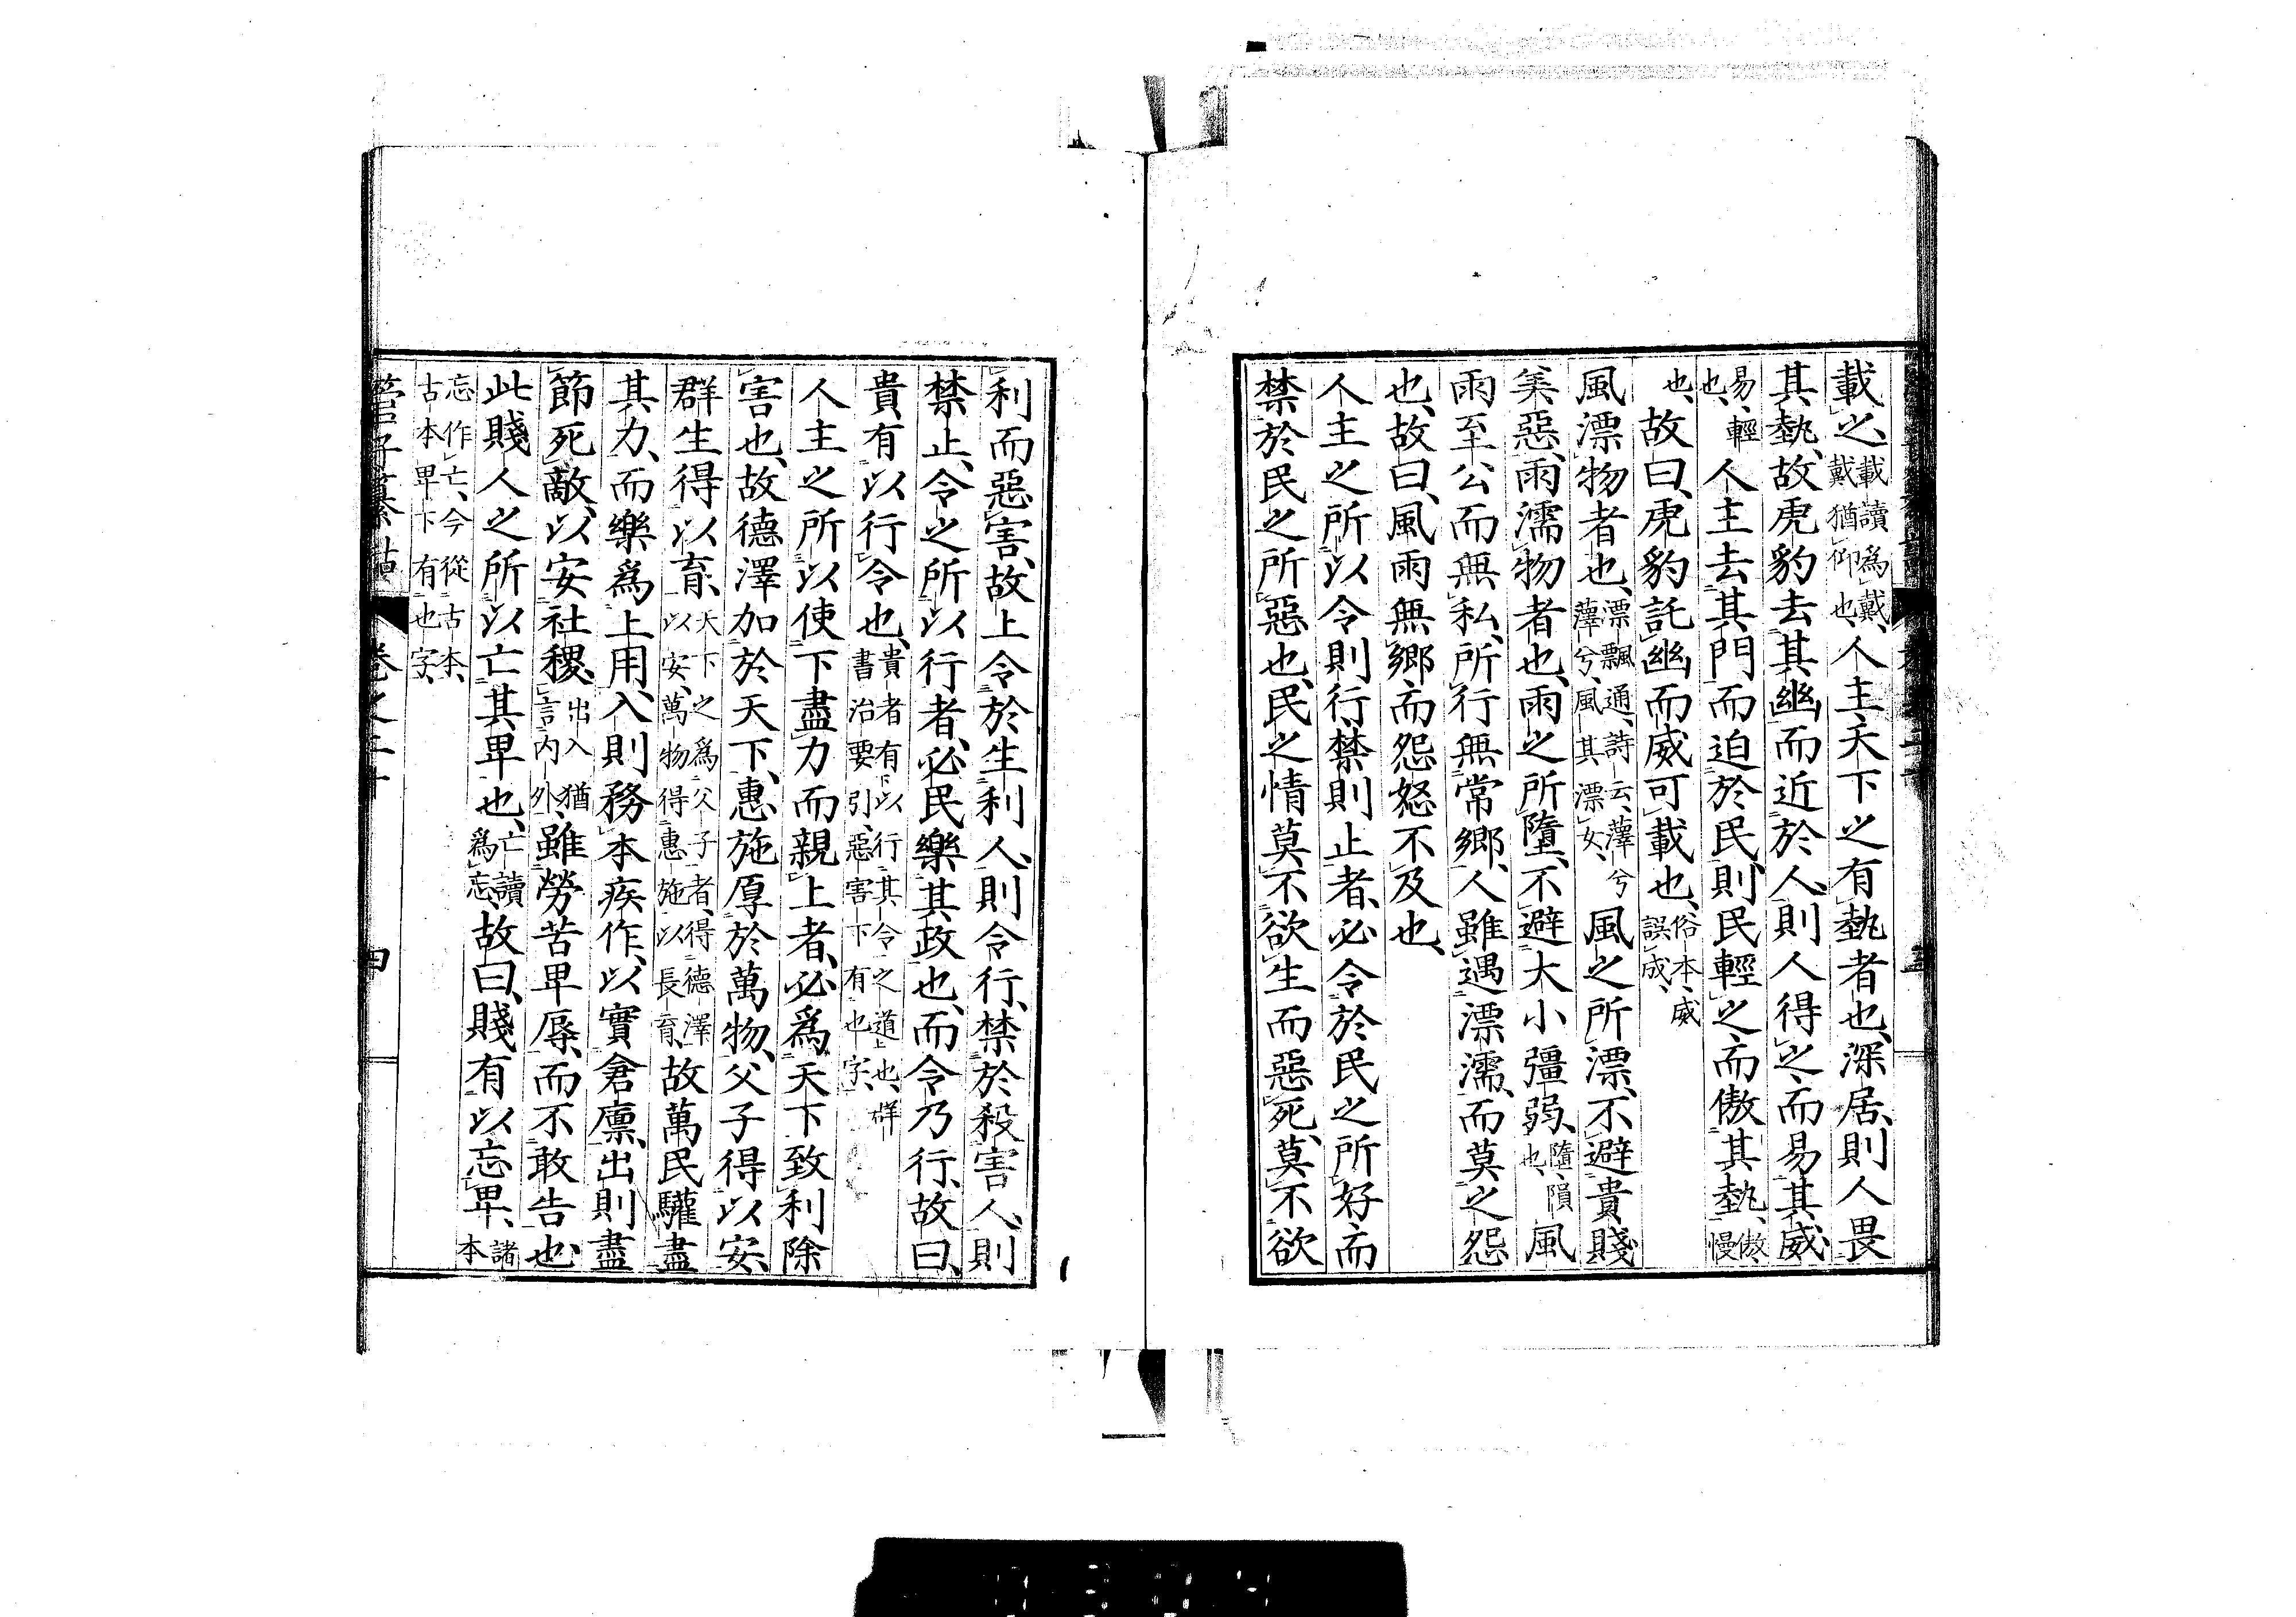 載之、載讀爲戴、戴猶仰也、人主、天下之有埶者也、深居、則人畏
其埶、故虎豹去其幽而近於人、則人得之、而易其威、
易、輕也、人主去其門而迫於民、則民輕之、而傲其埶、傲、慢
也、故曰、虎豹託幽而威可載也、俗本、威誤成、
風漂物者也、漂飄通、詩云、蘀兮蘀兮、風其漂女、風之所漂、不避貴賤
美惡、雨濡物者也、雨之所墮、不避大小彊弱、墮、隕也、風
雨至公而無私、所行無常鄉、人雖遇漂濡、而莫之怨
也、故曰、風雨無鄉、而怨怒不及也、
人主之所以令則行、禁則止者、必令於民之所好、而
禁於民之所惡也、民之情莫不欲生而惡死、莫不欲
利而惡害、故上令於生利人、則令行、禁於殺害人、則
禁止、令之所以行者、必民樂其政也、而令乃行、故曰、
貴有以行令也、貴者有以行其令之道也、群書治要引、惡害下有也字、
人主之所以使下盡力而親上者、必爲天下致利除
害也、故德澤加於天下、惠施厚於萬物、父子得以安、
群生得以育、天下之爲父子者、得德澤以安、萬物得惠施以長育、故萬民驩盡
其力、而樂爲上用、入則務本疾作、以實倉廩、出則盡
節死敵、以安社稷、出入猶言内外、雖勞苦卑辱、而不敢告也、
此賤人之所以亡其卑也、亡讀爲忘、故曰、賤有以忘卑、諸本
忘作亡、今從古本、古本卑下有也字、
管子纂詁 卷之二十 四